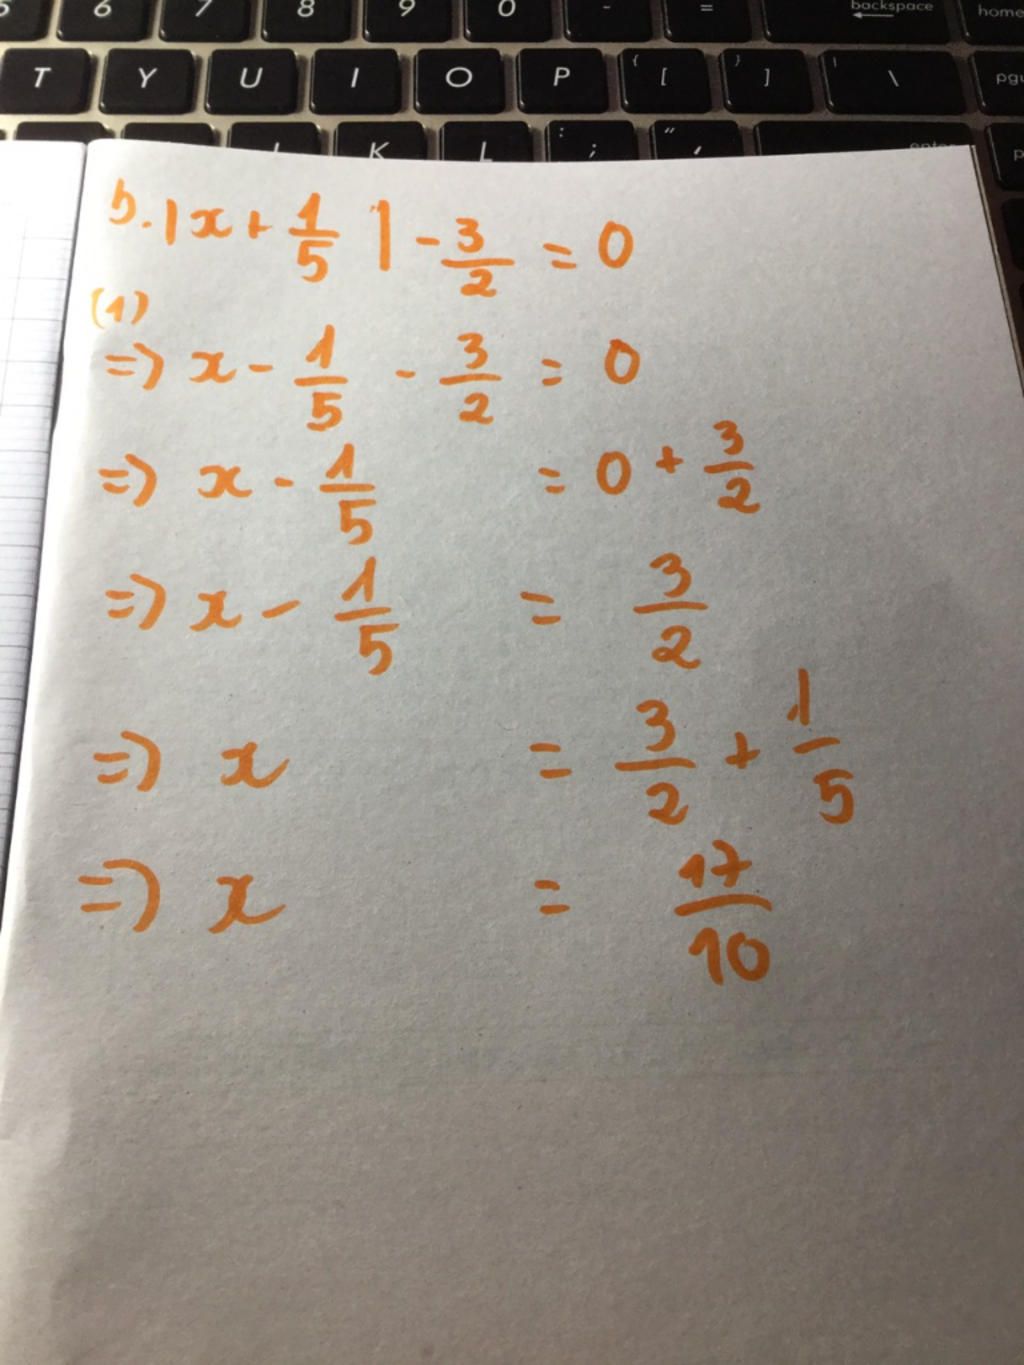 5 6 7 8 9 0 - = backspace home
T Y U I O P { [ } ] | \ pgu
K L : ; " ' enter p
b. |x + 1/5 | - 3/2 = 0
(1)
=> x - 1/5 - 3/2 = 0
=> x - 1/5 = 0 + 3/2
=> x - 1/5 = 3/2
=> x = 3/2 + 1/5
=> x = 17/10